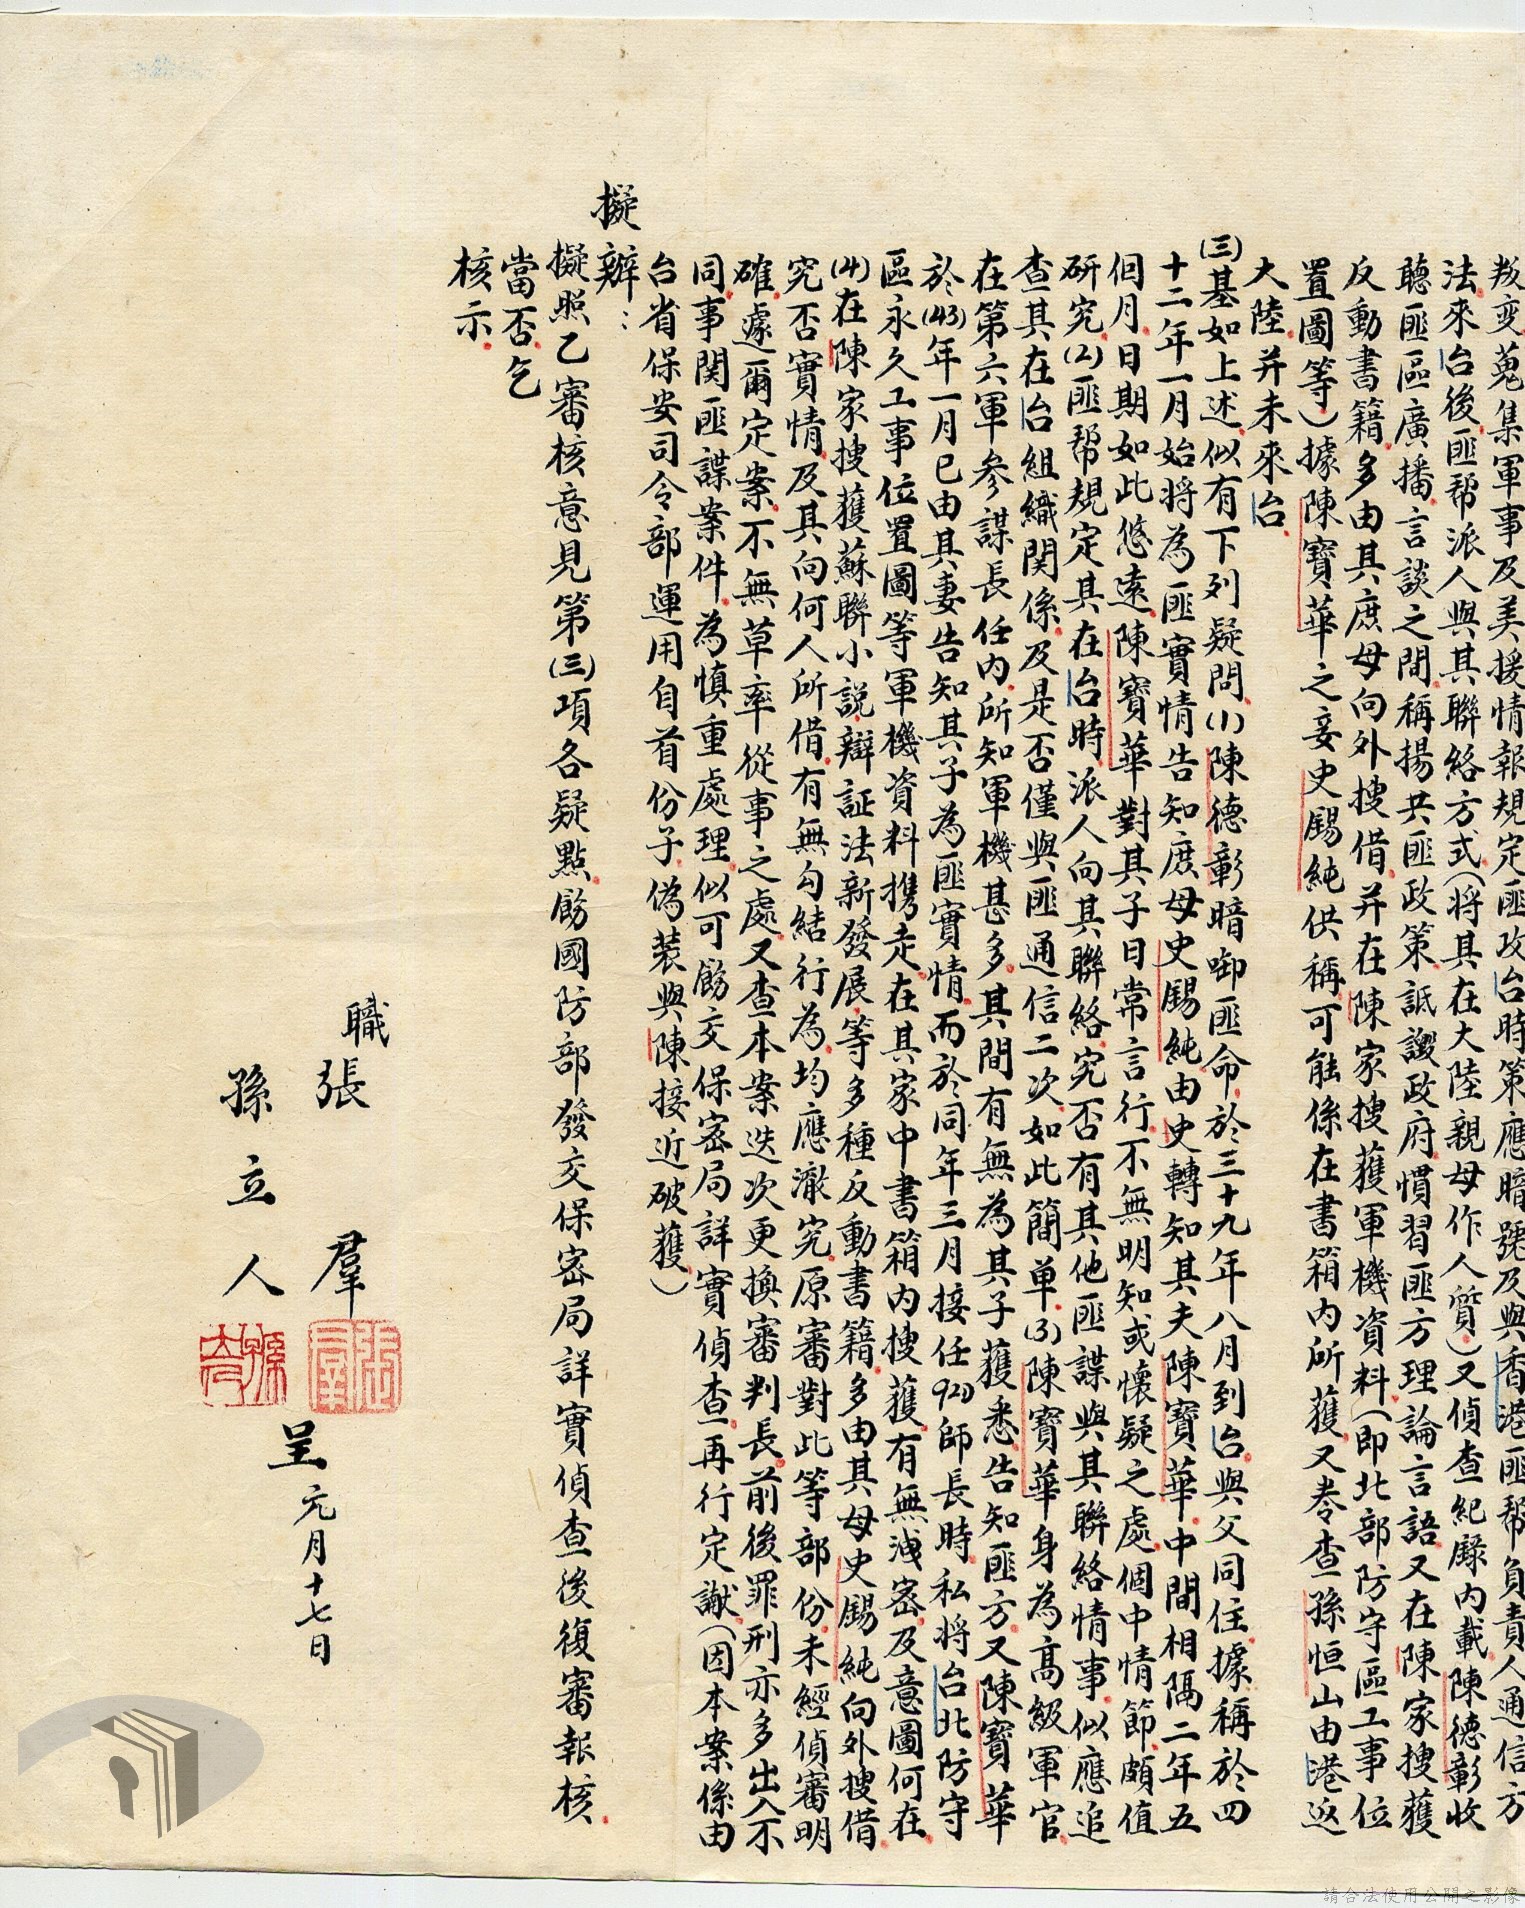 叛变蒐集軍事及美援情報規定匪攻台時策應暗號及與香港匪帮負責人通信方
法來台後匪帮派人與其聯絡方式(將其在大陸親母作人質)又偵查紀錄內載陳德彰收
聽匪區廣播言談之間稱揚共匪政策詆譭政府慣習匪方理論言語又在陳家搜獲
反動書籍多由其庶母向外搜借并在陳家搜獲軍機資料(即北部防守區工事位
置圖等)據陳寶華之妾史賜純供稱可能係在書箱內所獲又叅查孫恒山由港返
大陸并未來台
(三)基如上述似有下列疑問(1)陳德彰暗啣匪命於三十九年八月到台與父同住據稱於四
十二年一月始將為匪實情告知庶母史賜純由史轉知其夫陳寶華中間相隔二年五
個月日期如此悠遠陳寶華對其子日常言行不無明知或懷疑之處個中情節頗值
研究(2)匪帮規定其在台時派人向其聯絡究否有其他匪諜與其聯絡情事似應追
查其在台組織関係及是否僅與匪通信二次如此簡单(3)陳寶華身為高級軍官
在第六軍參謀長任內所知軍機甚多其間有無為其子獲悉告知匪方又陳寶華
於(43)年一月已由其妻告知其子為匪實情而於同年三月接任92D師長時私將台北防守
區永久工事位置圖等軍機資料携走在其家中書箱內搜獲有無洩密及意圖何在
(4)在陳家搜獲蘇聯小説辯証法新發展等多種反動書籍多由其母史賜純向外搜借
究否實情及其向何人所借有無勾結行為均應澈究原審對此等部份未經偵審明
確遽邇定案不無草率從事之處又查本案迭次更換審判長前後罪刑亦多出入不
同事関匪諜案件為慎重處理似可飭交保密局詳實偵查再行定讞(因本案係由
台省保安司令部運用自首份子偽裝與陳接近破獲)
擬辦：
擬照乙審核意見第(三)項各疑點飭國防部發交保密局詳實偵查後復審報核
當否乞
核示
職張羣
孫立人
呈元月十七日
張羣
請合法使用公開之影像